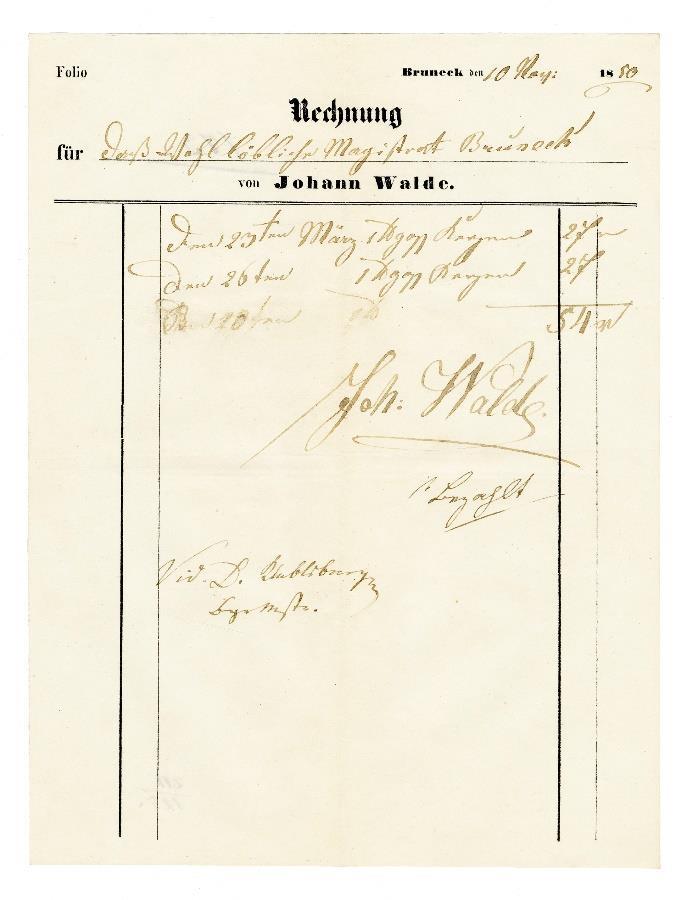 Folio Bruneck den 10 Nov: 1850
Rechnung
für Daß Wohl löbliche Magistrat Bruneck
von Johann Walde.
Den 23ten März 1 Kerzen 27
Den 26ten 1 Kerzen 27
54
Joh: Walde
Bezahlt
Vid. D.